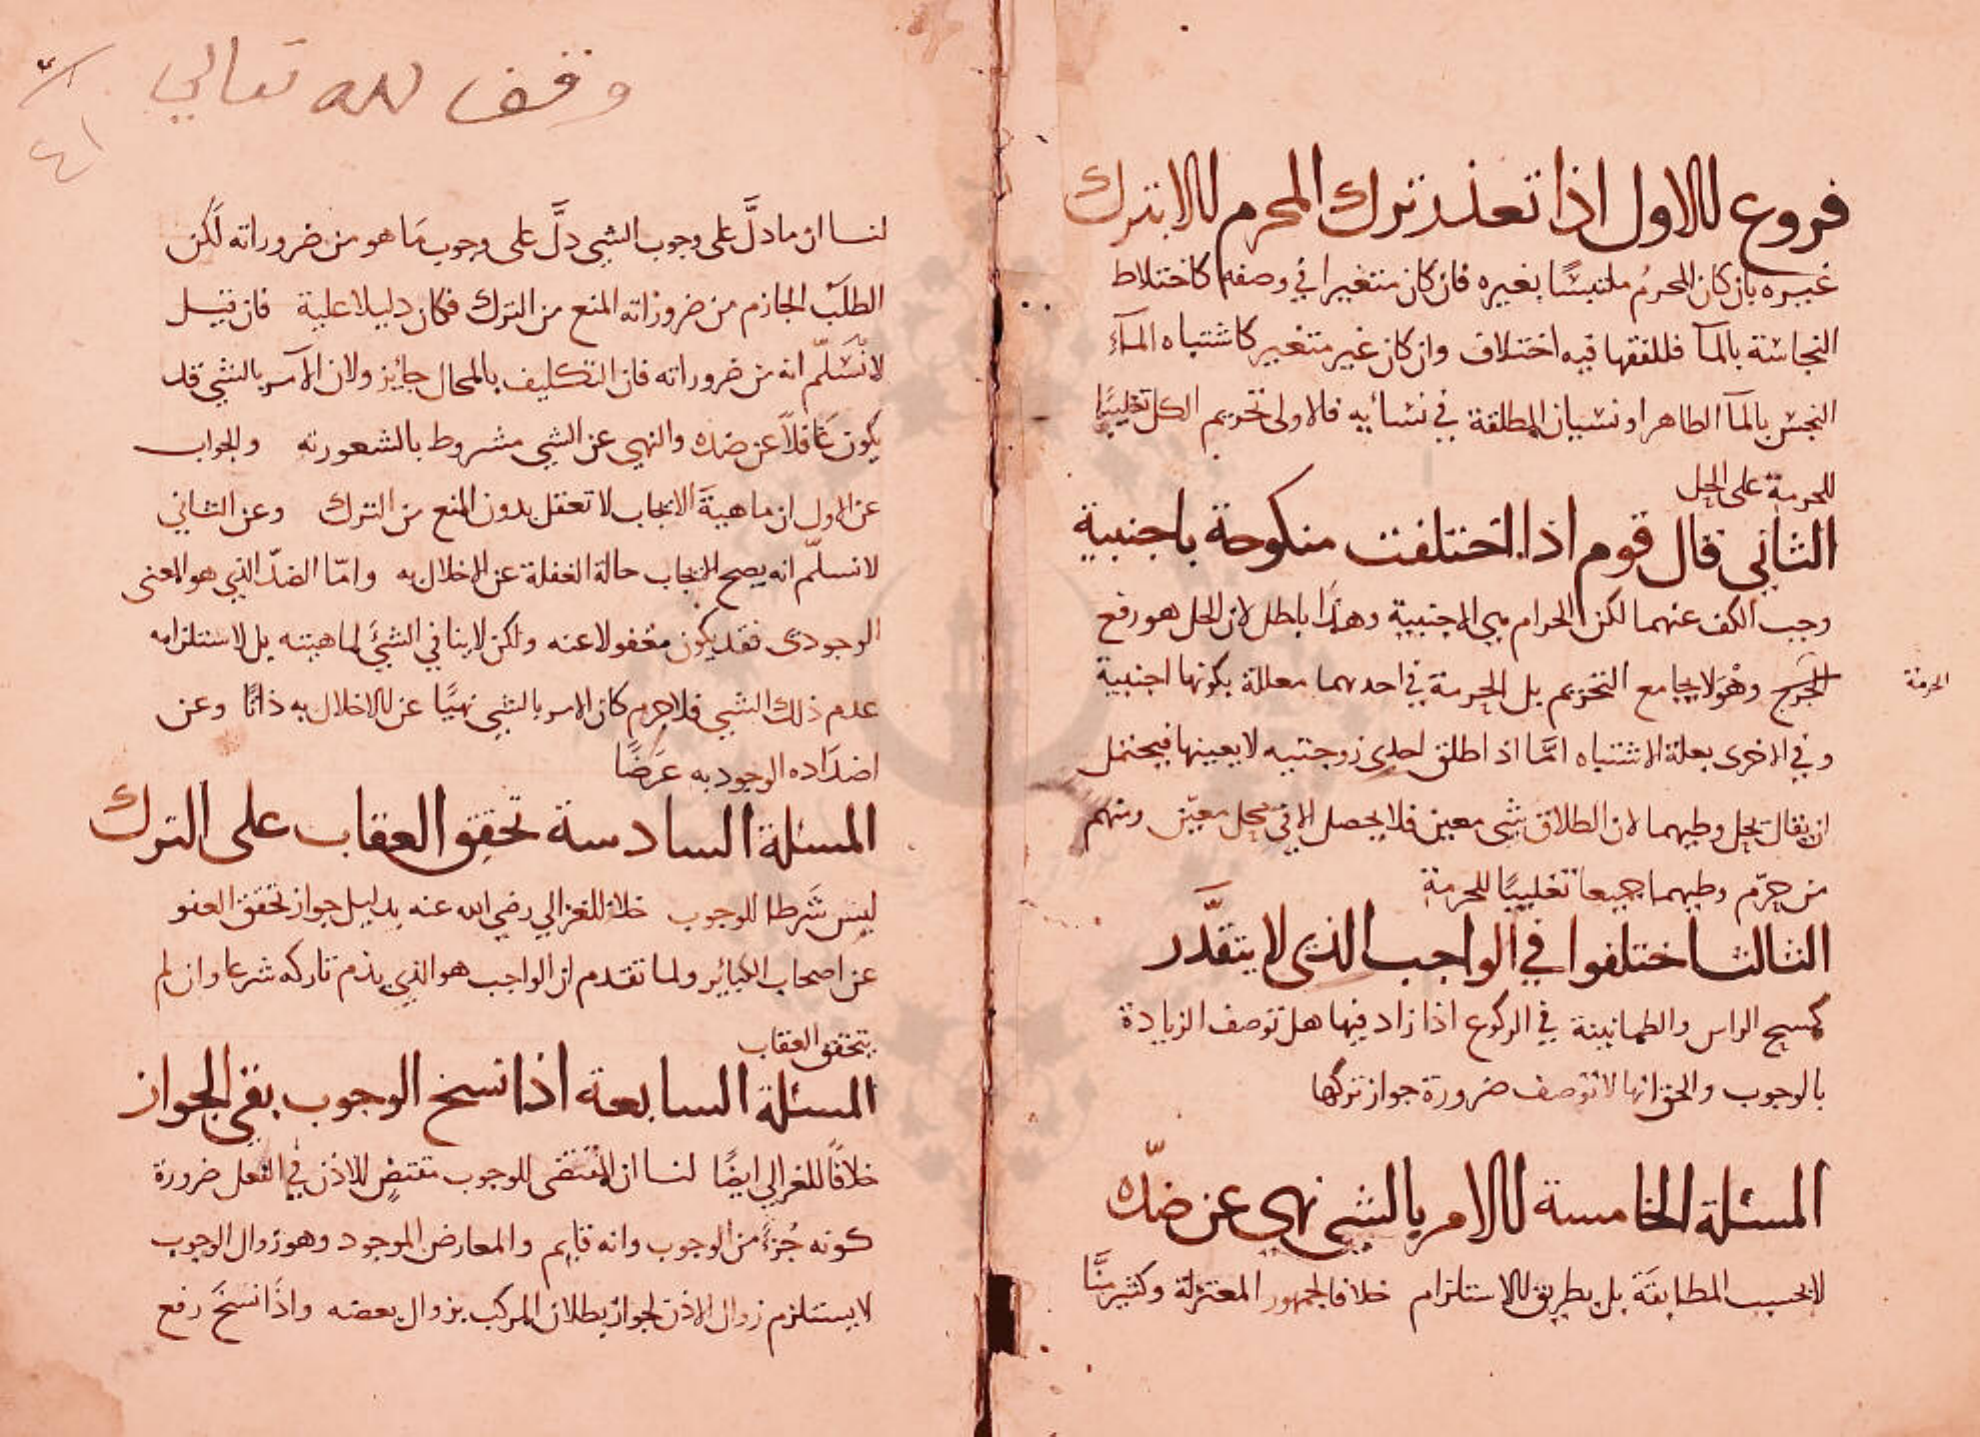 فروع للاول اذا تعذر ترك المحرم الا بترك
غيره بان كان المحرم ملتبسًا بغيره فان كان متغيرا في وصفه كاختلاط
النجاسة بالمآ فللفقها فيه اختلاف وان كان غير متغير كاشتباه المآء
النجس بالمآ الطاهر او نسيان المطلقة في نسائه فالاولى تحريم الكل تغليبًا
للحرمة على الحل
الثاني قال قوم اذا اختلفت منكوحة باجنبية
وجب الكف عنهما لكن الحرام هي الاجنبية وهذا باطل لان الحل هو رفع
الحرج وهو لا يجامع التحريم بل الحرمة في احديهما معللة بكونها اجنبية
الحرمة
وفي الاخرى بعلة الاشتباه امّا اذا طلق احدى زوجتيه لا بعينها فيحتمل
ان يقال بحل وطيهما لان الطلاق شي معين فلا يحصل الا في محل معيّن ومنهم
من حرّم وطيهما جميعا تغليبًا للحرمة
الثالث اختلفوا في الواجب الذي لا يتقدَّر
كمسح الراس والطمانينة في الركوع اذا زاد فيها هل توصف الزيادة
بالوجوب والحق انها لا توصف ضرورة جواز تركها
المسئلة الخامسة الامر بالشي نهي عن ضدّه
لا بحسب المطابقة بل بطريق الاستلزام خلافا لجمهور المعتزلة وكثير منَّا
وقف لله تعالي
٤١
لنا ان ما دلَّ على وجوب الشي دلَّ على وجوب ما هو من ضروراته لكن
الطلب الجازم من ضروراته المنع من الترك فكان دليلا عليه فان قيل
لا نُسَلّم انه من ضروراته فان التكليف بالمحال جائز ولان الآمر بالشي قد
يكون غافلاً عن ضده والنهي عن الشي مشروط بالشعور به والجواب
عن الاول ان ماهية الايجاب لا تعقل بدون المنع من الترك وعن الثاني
لا نسلّم انه يصح الايجاب حالة الغفلة عن الاخلال به وامّا الضدّ الذي هو المعنى
الوجودى فقد يكون مغفولا عنه ولكن لا ينافي الشئ لماهيته بل لاستلزامه
عدم ذلك الشي فلا جرم كان الامر بالشي نهيًا عن الاخلال به ذاتًا وعن
اضداده الوجودية عَرَضًا
المسئلة السادسة تحقق العقاب على الترك
ليس شَرطا للوجوب خلافا للغزالي رضي الله عنه بدليل جواز تحقق العفو
عن اصحاب الكبائر ولما تقدم ان الواجب هو الذي يذم تاركه شرعا وان لم
يتحقق العقاب
المسئلة السابعة اذا نسخ الوجوب بقي الجواز
خلافًا للغزالي ايضًا لنا ان المقتضى للوجوب مقتضٍ للاذن في الفعل ضرورة
كونه جُزءً من الوجوب وانه قايم والمعارض الموجود وهو زوال الوجوب
لا يستلزم زوال الاذن لجواز بطلان المركب بزوال بعضه واذَا نسخَ رفع